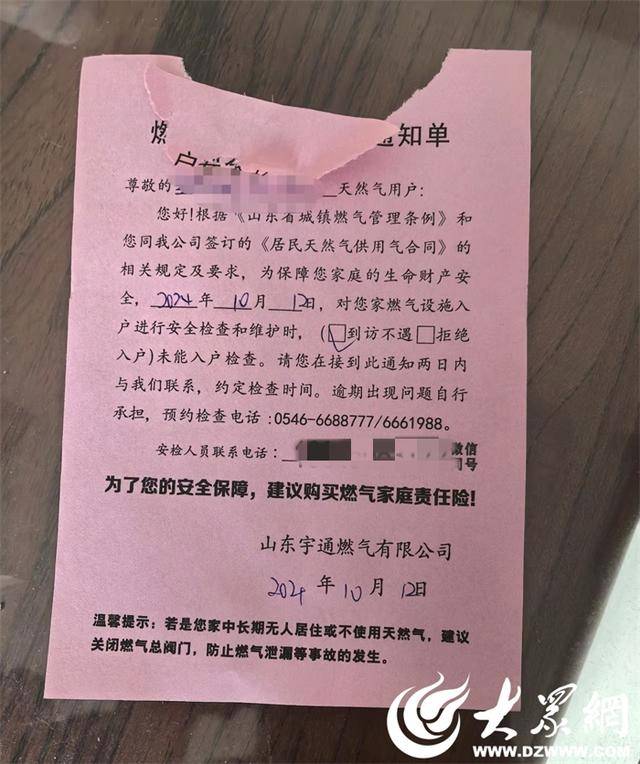 燃
通知单
尊敬的 天然气用户:
您好!根据《山东省城镇燃气管理条例》和
您同我公司签订的《居民天然气供用气合同》的
相关规定及要求，为保障您家庭的生命财产安
全，2024年10月12日，对您家燃气设施入
户进行安全检查和维护时，(☑到访不遇□拒绝
入户)未能入户检查。请您在接到此通知两日内
与我们联系，约定检查时间。逾期出现问题自行
承担，预约检查电话:0546-6688777/6661988。
安检人员联系电话: 微信
同号
为了您的安全保障，建议购买燃气家庭责任险!
山东宇通燃气有限公司
2024年10月12日
温馨提示：若是您家中长期无人居住或不使用天然气，建议
关闭燃气总阀门，防止燃气泄漏等事故的发生。
大众網
www.DZWWW.com